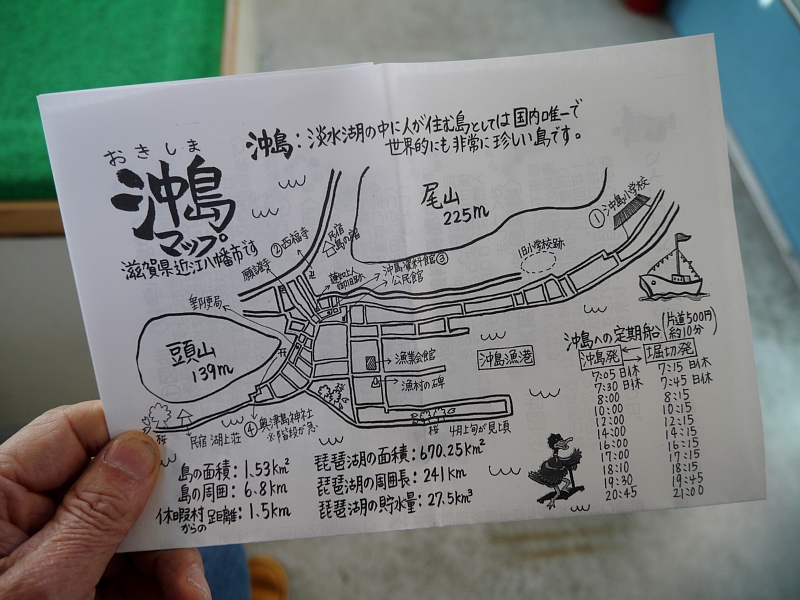 おきしま
沖島マップ
滋賀県近江八幡市です
沖島:淡水湖の中に人が住む島としては国内唯一で
世界的にも非常に珍しい島です。
尾山
225m
①沖島小学校
②西福寺
民宿
島の宿
願證寺
蓮如上人
沖島資料館③
公民館
旧小学校跡
郵便局
頭山
139m
漁業会館
漁村の碑
沖島漁港
桜
民宿 湖上荘
④奥津島神社
※階段が急
桜 4月上旬が見頃
沖島への定期船(片道500円 約10分)
沖島発 ⟷ 堀切発
7:05 日休 7:15 日休
7:30 日休 7:45 日休
8:00 8:15
10:00 10:15
12:00 12:15
14:00 14:15
16:00 16:15
17:00 17:15
18:10 18:15
19:30 19:45
20:45 21:00
島の面積:1.53km²
島の周囲:6.8km
休暇村からの距離:1.5km
琵琶湖の面積:670.25km²
琵琶湖の周囲長:241km
琵琶湖の貯水量:27.5km³